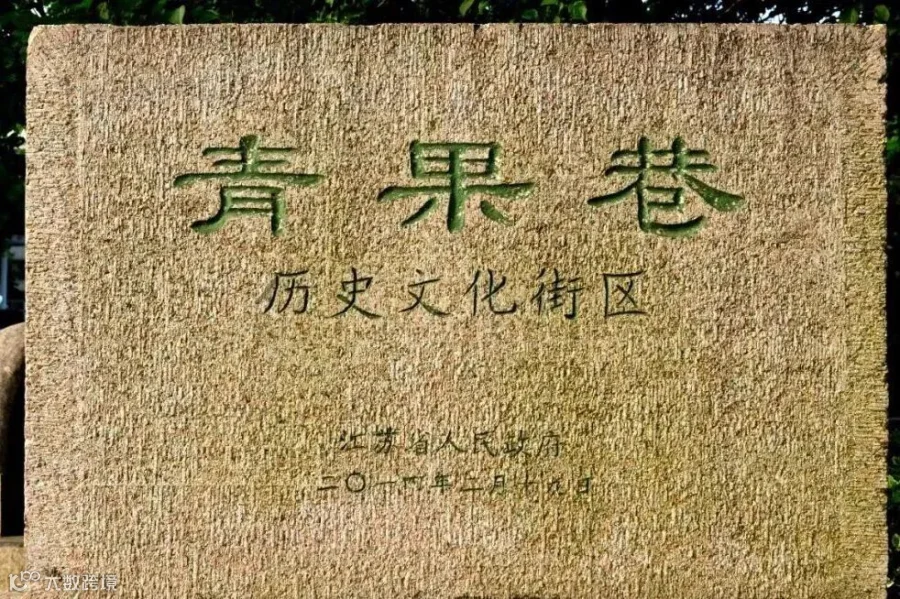 青果巷
历史文化街区
江苏省人民政府
二〇一四年二月十九日
大数跨境